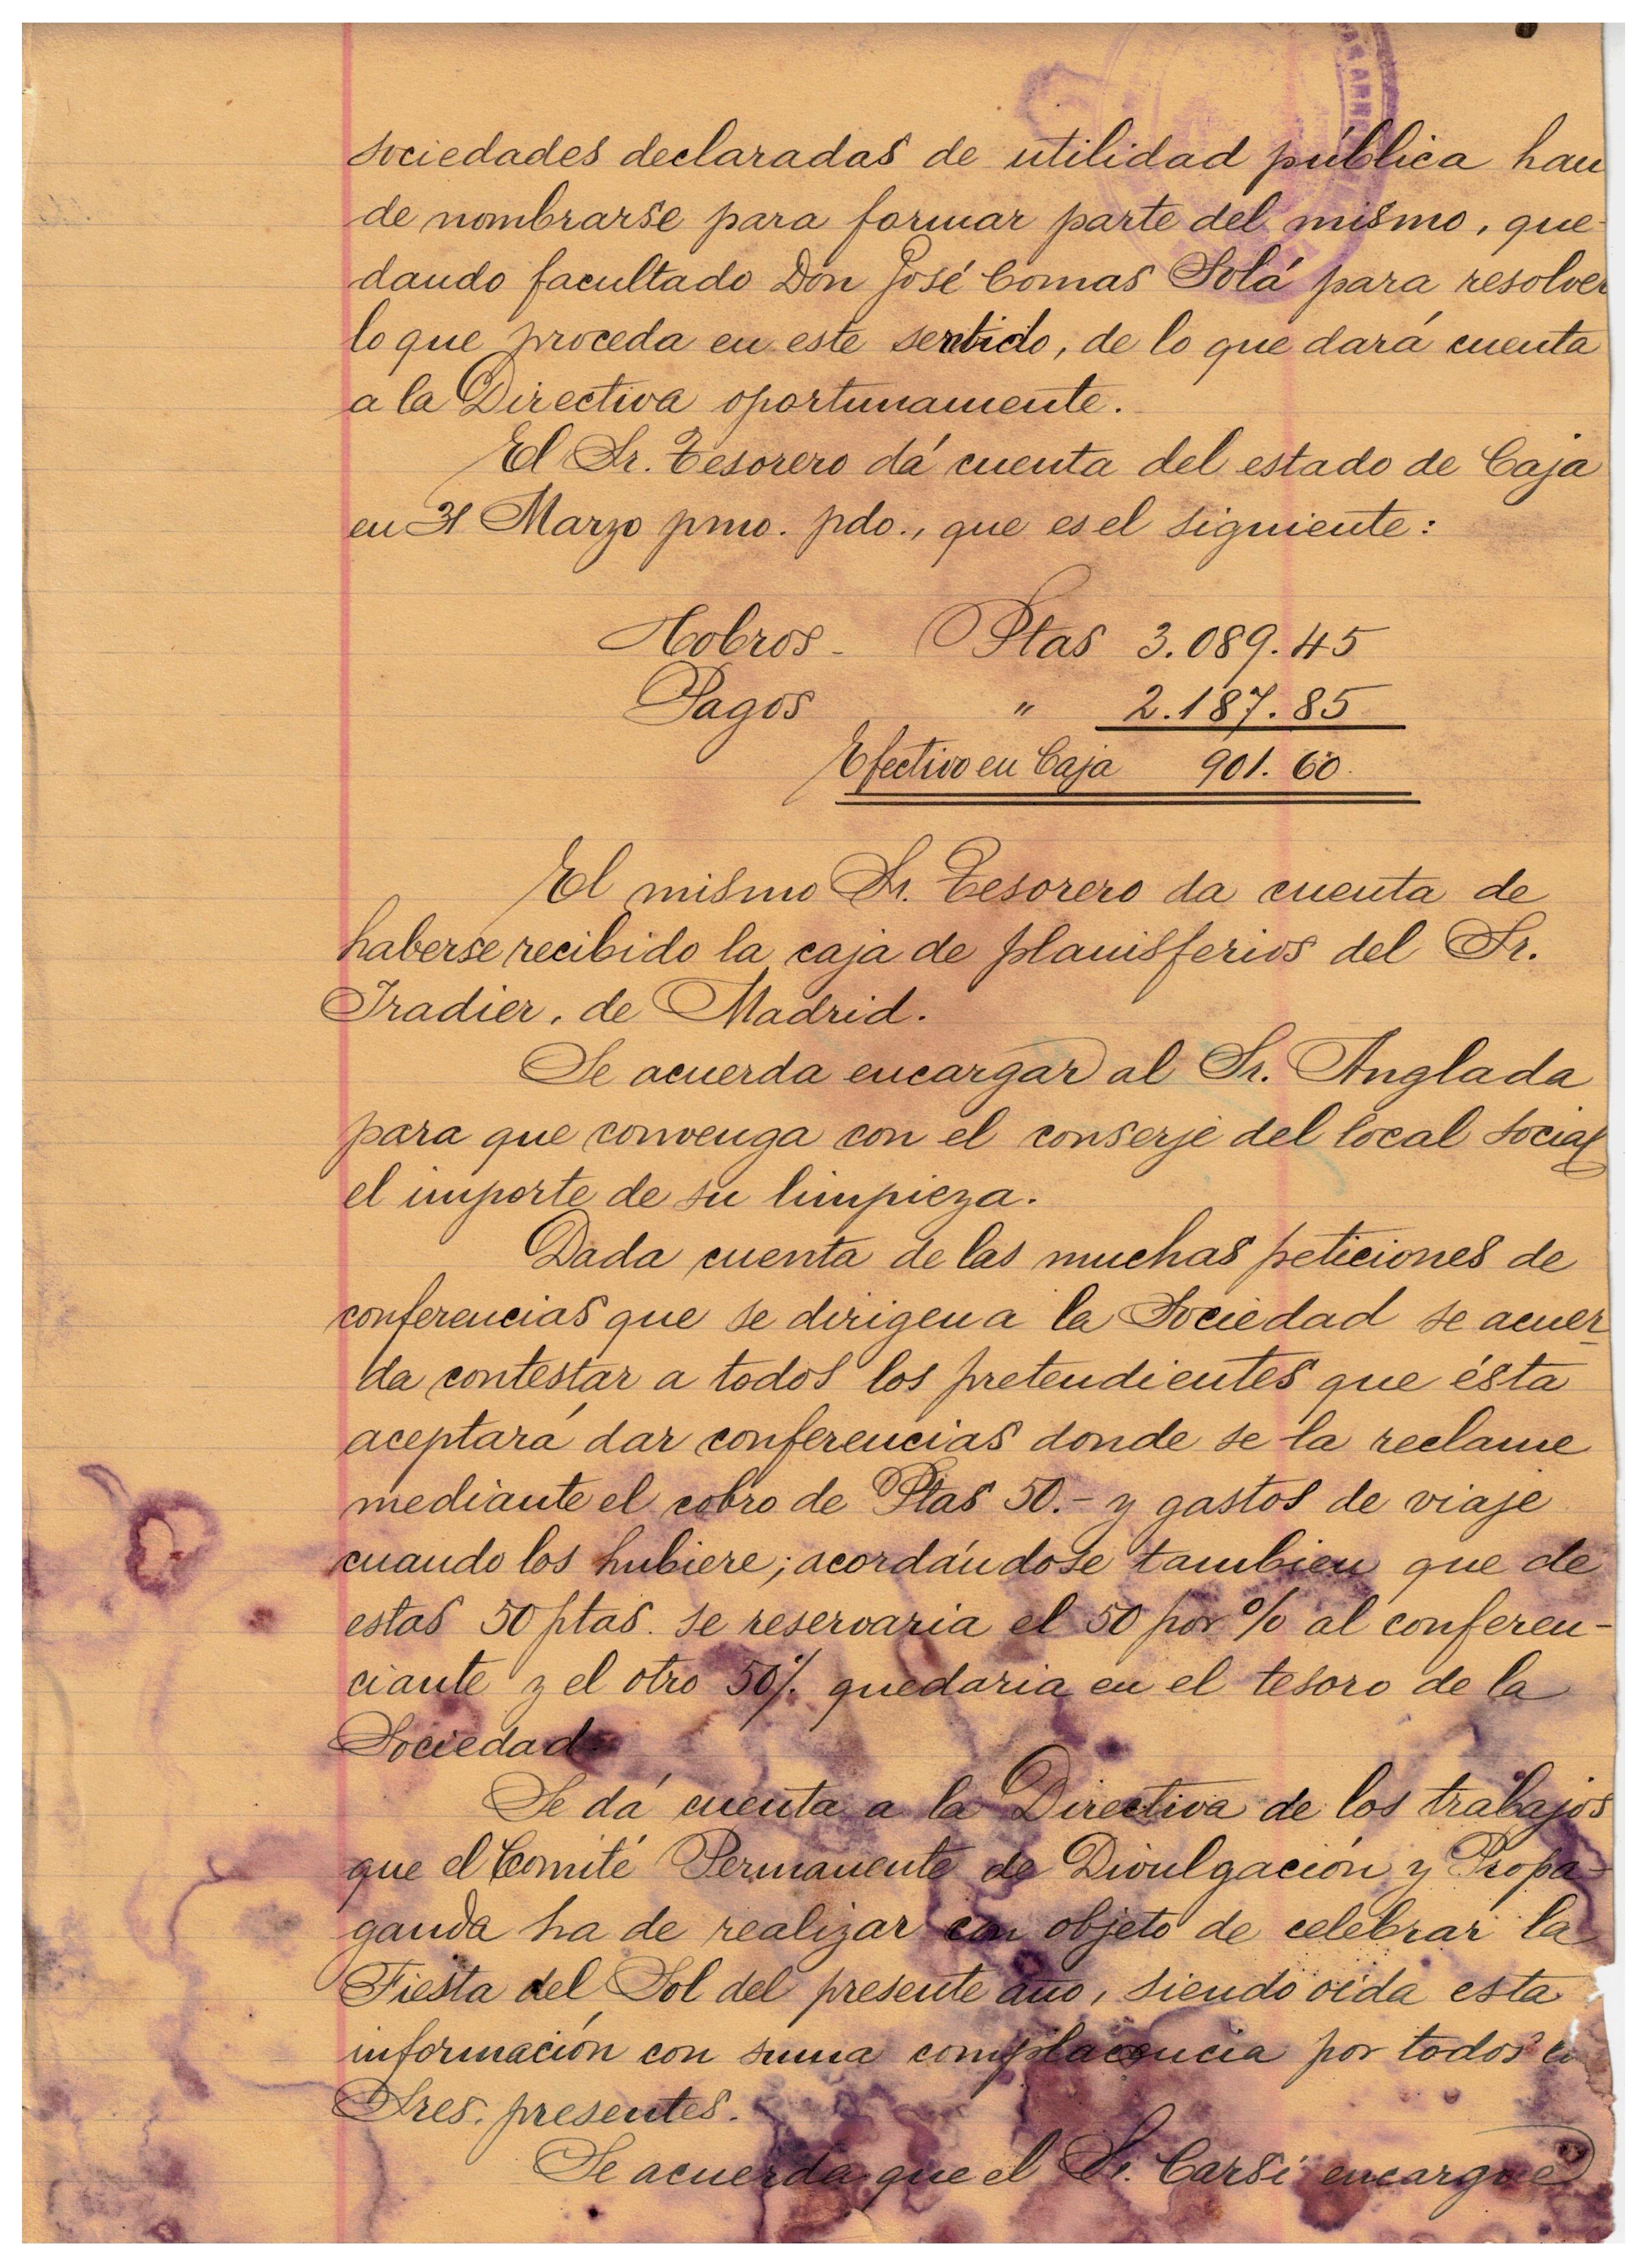 sociedades declaradas de utilidad pública han
de nombrarse para formar parte del mismo, que-
dando facultado Don José Comas Solá para resolver
lo que proceda en este sentido, de lo que dará cuenta
a la Directiva oportunamente.
El Sr. Tesorero dá cuenta del estado de Caja
en 31 Marzo pmo. pdo., que es el siguiente:
Cobros - Ptas 3.089.45
Pagos " 2.187.85
Efectivo en Caja 901.60
El mismo Sr. Tesorero da cuenta de
haberse recibido la caja de planisferios del Sr.
Iradier, de Madrid.
Se acuerda encargar al Sr. Anglada
para que convenga con el conserje del local social
el importe de su limpieza.
Dada cuenta de las muchas peticiones de
conferencias que se dirigen a la Sociedad se acuer-
da contestar a todos los pretendientes que ésta
aceptará dar conferencias donde se la reclame
mediante el cobro de Ptas 50.- y gastos de viaje
cuando los hubiere; acordándose tambien que de
estas 50 ptas. se reservaria el 50 por % al conferen-
ciante y el otro 50% quedaria en el tesoro de la
Sociedad.
Se dá cuenta a la Directiva de los trabajos
que el Comité Permanente de Divulgación y Propa-
ganda ha de realizar con objeto de celebrar la
Fiesta del Sol del presente año, siendo oida esta
información con suma complacencia por todos
Sres. presentes.
Se acuerda que el Sr. Carsí encargue